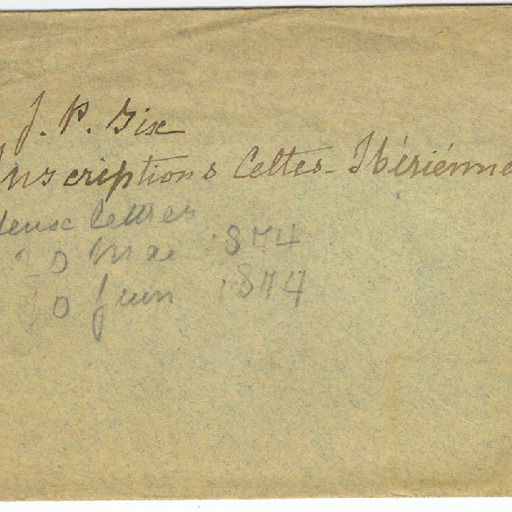 J. P. Six
Inscriptions Celtes-Ibériénne
deux lettres
20 1874
10 juin 1874